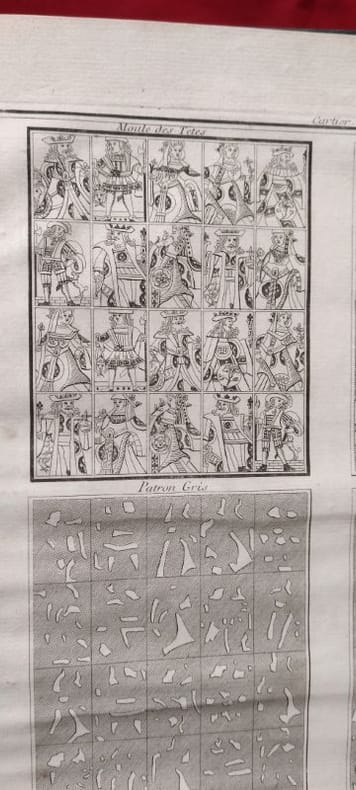 Cartier.
Moule des Tetes
Patron Gris